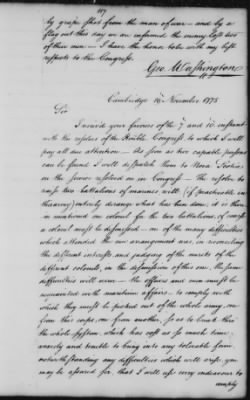 117
by grape shot from the man of war — and by a
flag out this day we are informed the enemy lost two
of three men — I have the honor to be with my best
respects to the Congress.
Geo. Washington
Cambridge 16th November 1775
Sir
I received your favours of the 7 and 10 instant
with the resolves of the Honble Congress to which I will
pay all due attention — As soon as two capable persons
can be found I will dispatch them to Nova Scotia
on the service resolved on in Congress — The resolve to
raise two battalions of marines will (if practicable in
this army) entirely derange what has been done, it is there
in mentioned one colonel for the two battalions, of course
a colonel must be dismissed — one of the many difficulties
which attended the new arrangement was, in reconciling
the different interests and judging of the merits of the
different colonels, in the dismission of this one, the same
difficulties will occur — the officers and men must be
acquainted with maritime affairs, to comply with
which they must be picked out of the whole army, one
from this corps, one from another, so as to break thro
the whole system, which has cost us so much time,
anxiety and trouble to bring into any tolerable form
notwithstanding any difficulties which will arise, you
may be assured sir that I will use every endeavour to
comply